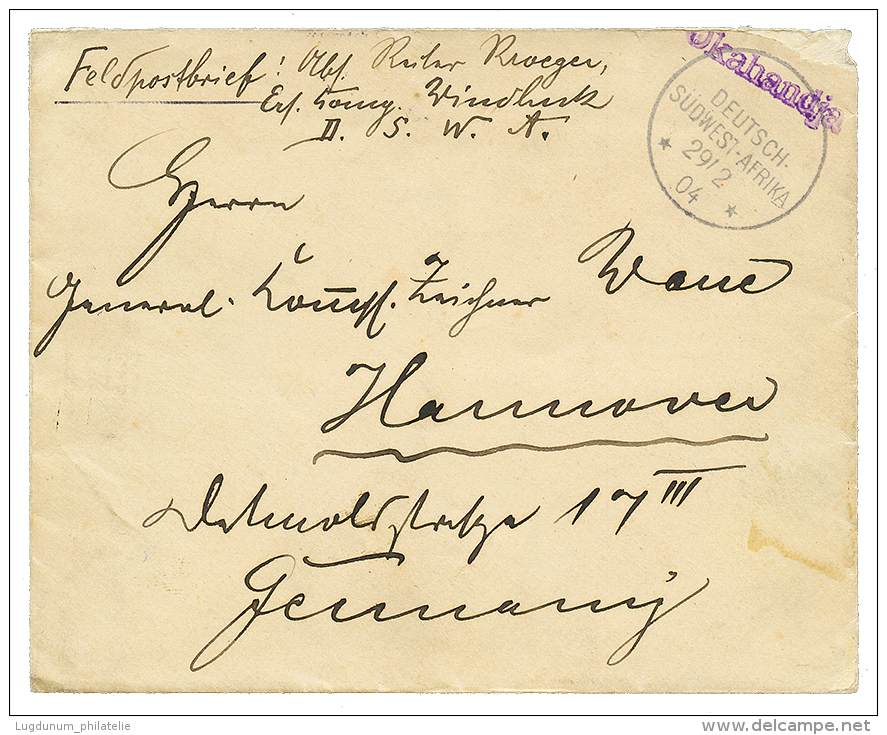 Feldpostbrief: Abs. Reiter Kroeger,
Ers. Komg. Windhuk
D. S. W. A.
Okahandja
DEUTSCH-
SÜDWEST-AFRIKA
29/2
04
Herrn
General. Zeichner
Hannover
Detmoldstraße 17 III
Germany
Lugdunum_philatelie
delcampe.net